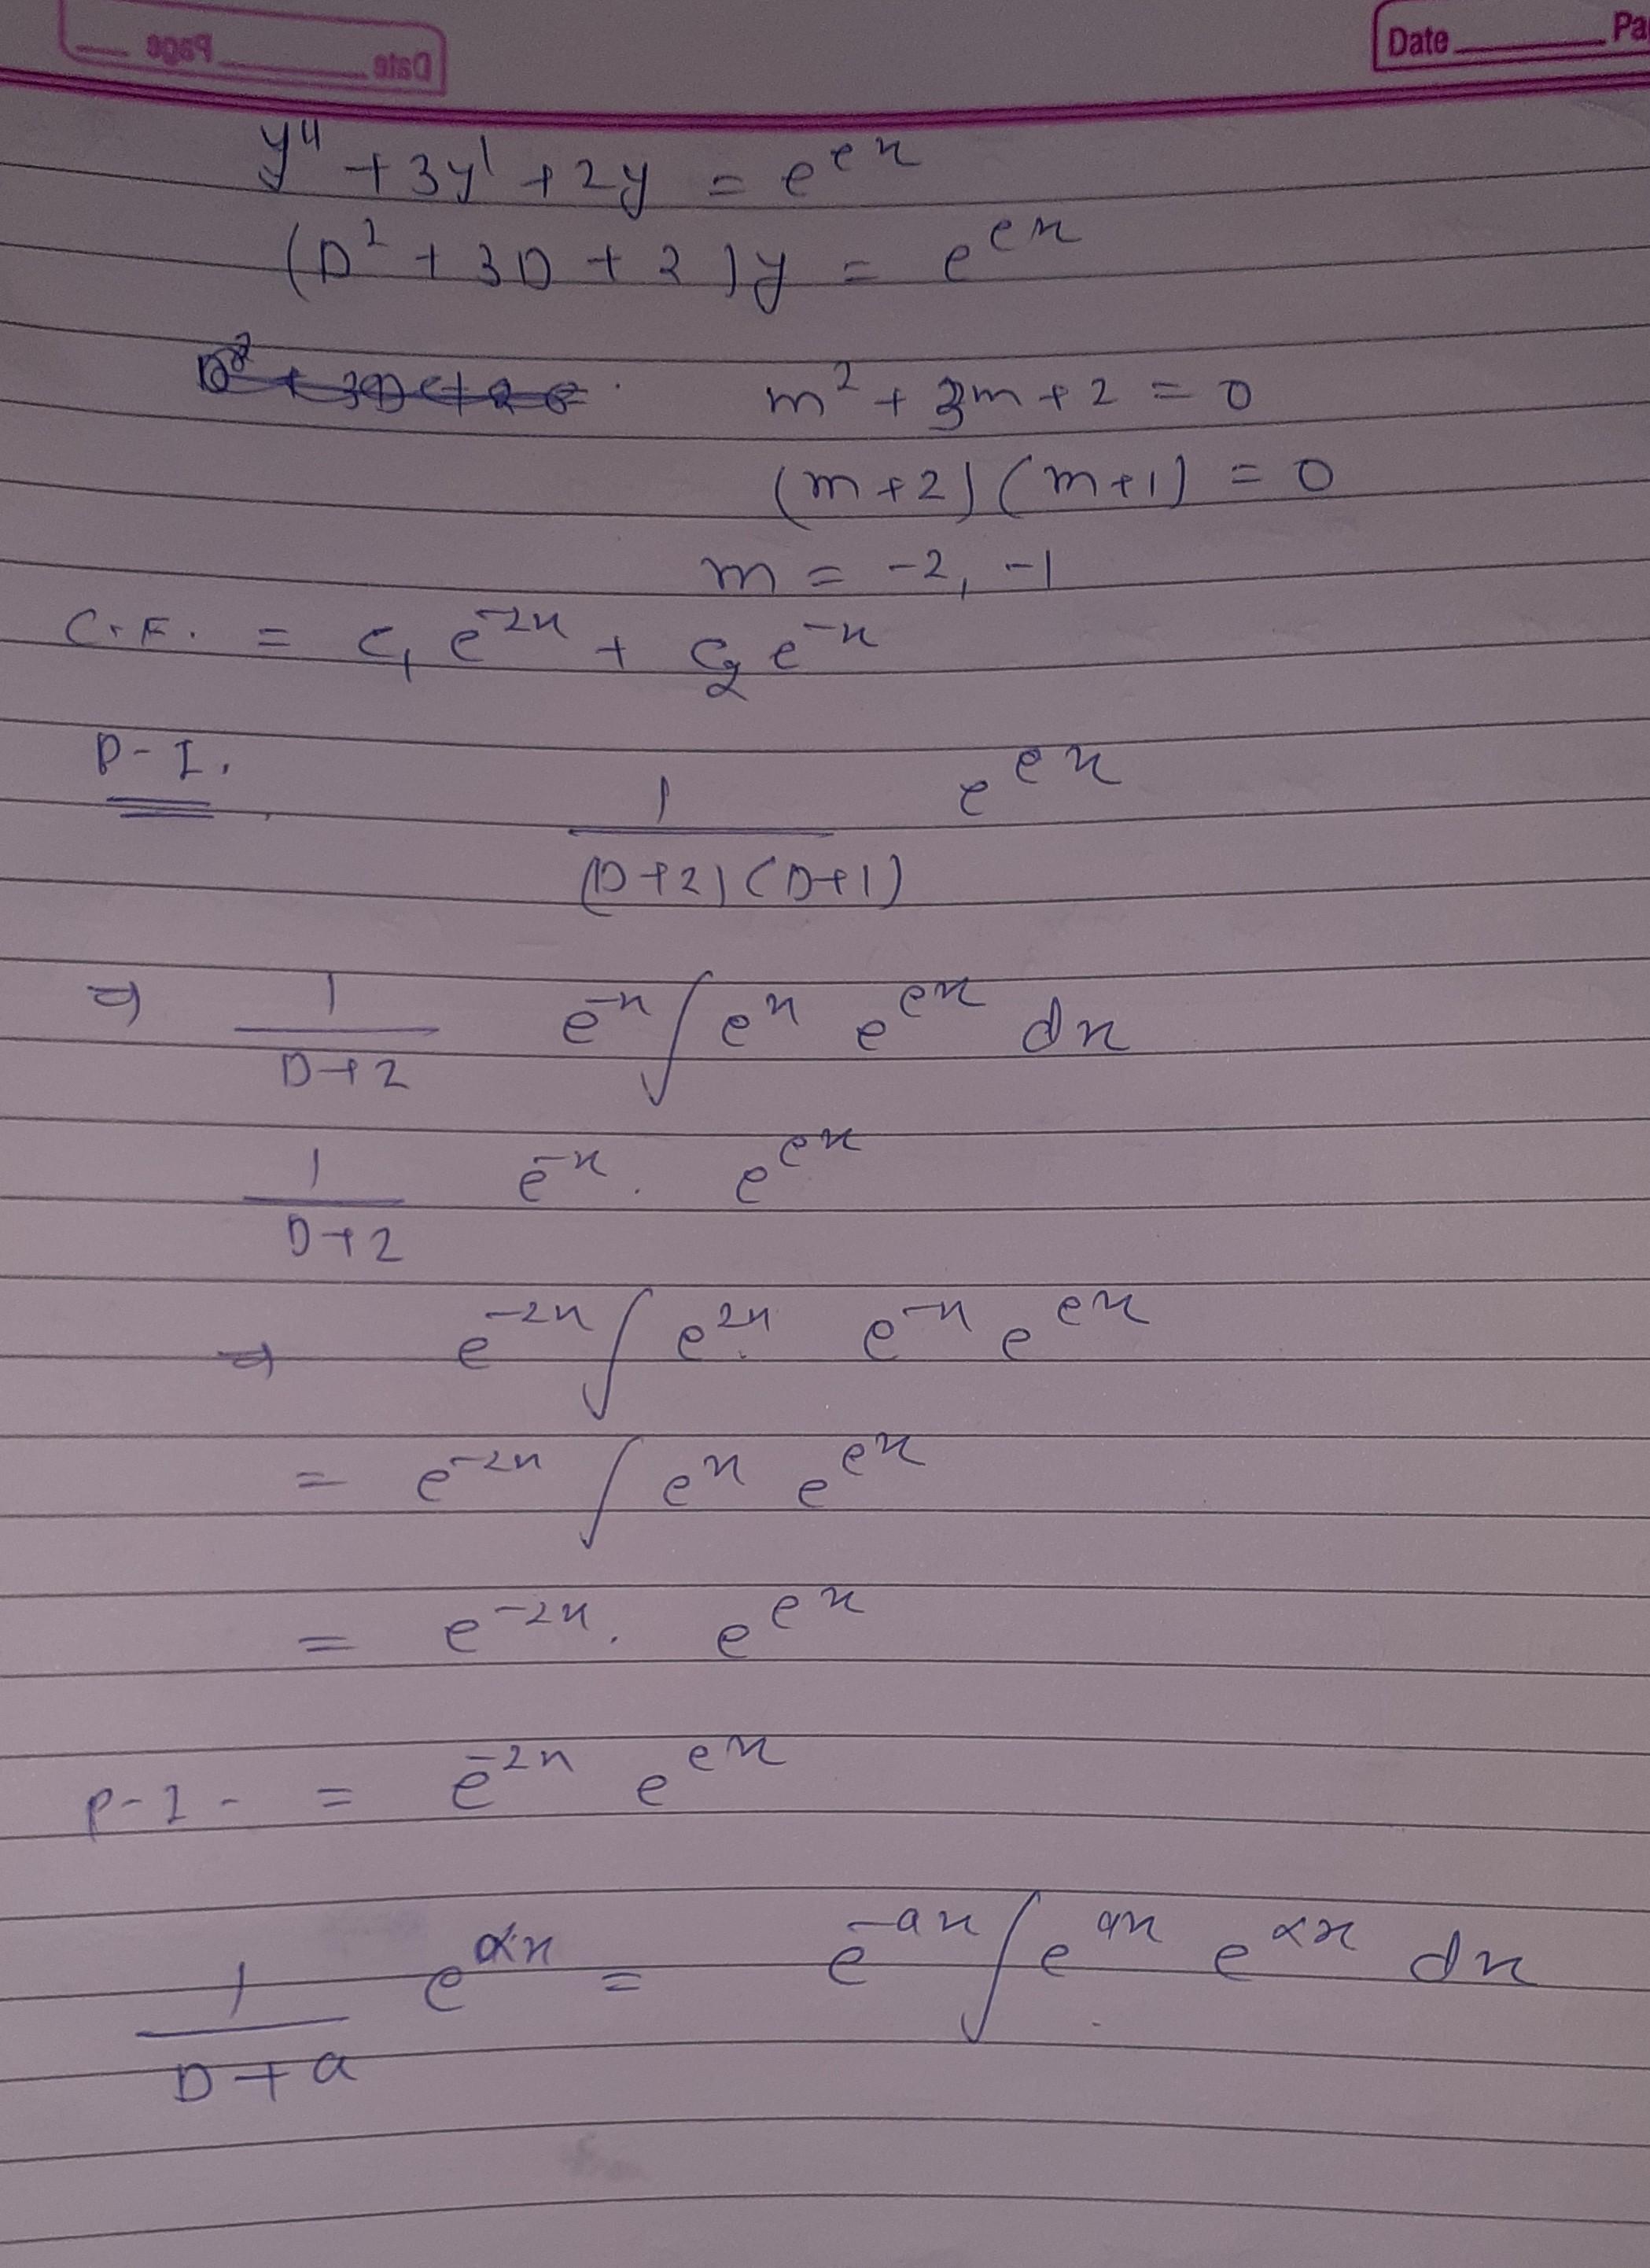 Page Date
Date Pa
y'' + 3y' + 2y = e^{e^x}
(D² + 3D + 2)y = e^{e^x}
m² + 3m + 2 = 0
(m+2)(m+1) = 0
m = -2, -1
C.F. = C₁ e^{-2x} + C₂ e^{-x}
P-I.
1/((D+2)(D+1)) e^{e^x}
⇒ 1/(D+2) e^{-x} ∫ e^x e^{e^x} dx
1/(D+2) e^{-x} . e^{e^x}
⇒ e^{-2x} ∫ e^{2x} e^{-x} e^{e^x}
= e^{-2x} ∫ e^x e^{e^x}
= e^{-2x} . e^{e^x}
P-I- = e^{-2x} e^{e^x}
1/(D+a) e^{αx} = e^{-ax} ∫ e^{ax} e^{αx} dx